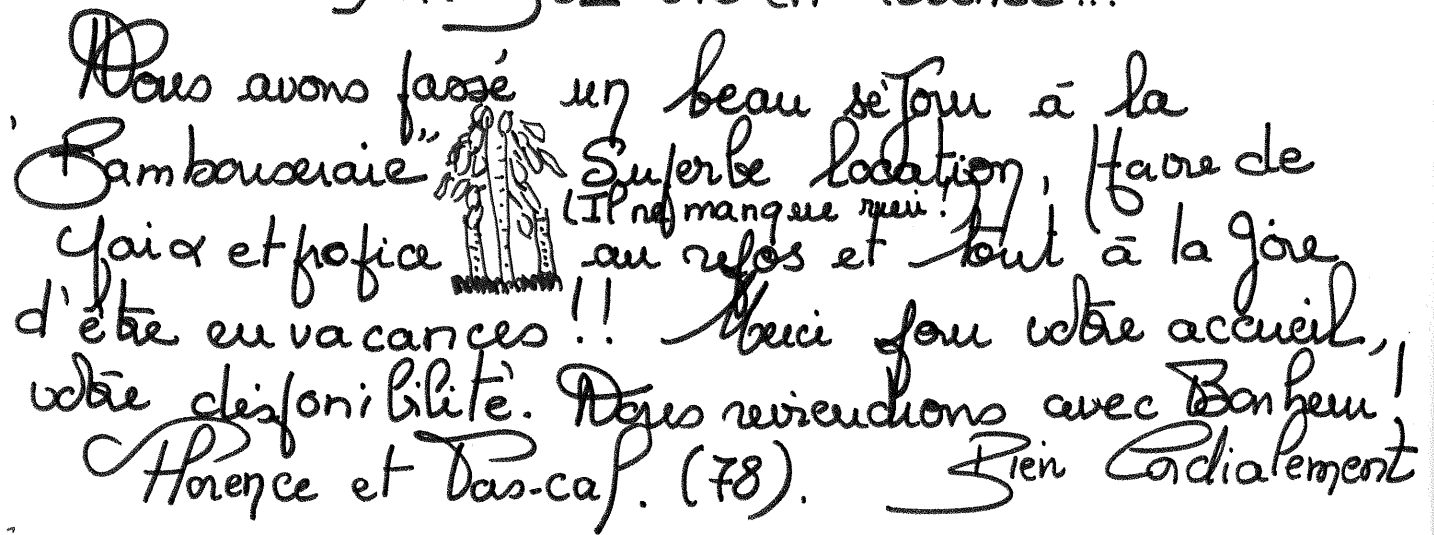 Nous avons passé un beau séjour à la
"Bambouseraie" Superbe location, Havre de
(Il ne manque rien !)
paix et propice au repos et tout à la joie
d'être en vacances !! Merci pour votre accueil,
votre disponibilité. Nous reviendrons avec Bonheur !
Florence et Pas-cal. (78). Bien Cordialement